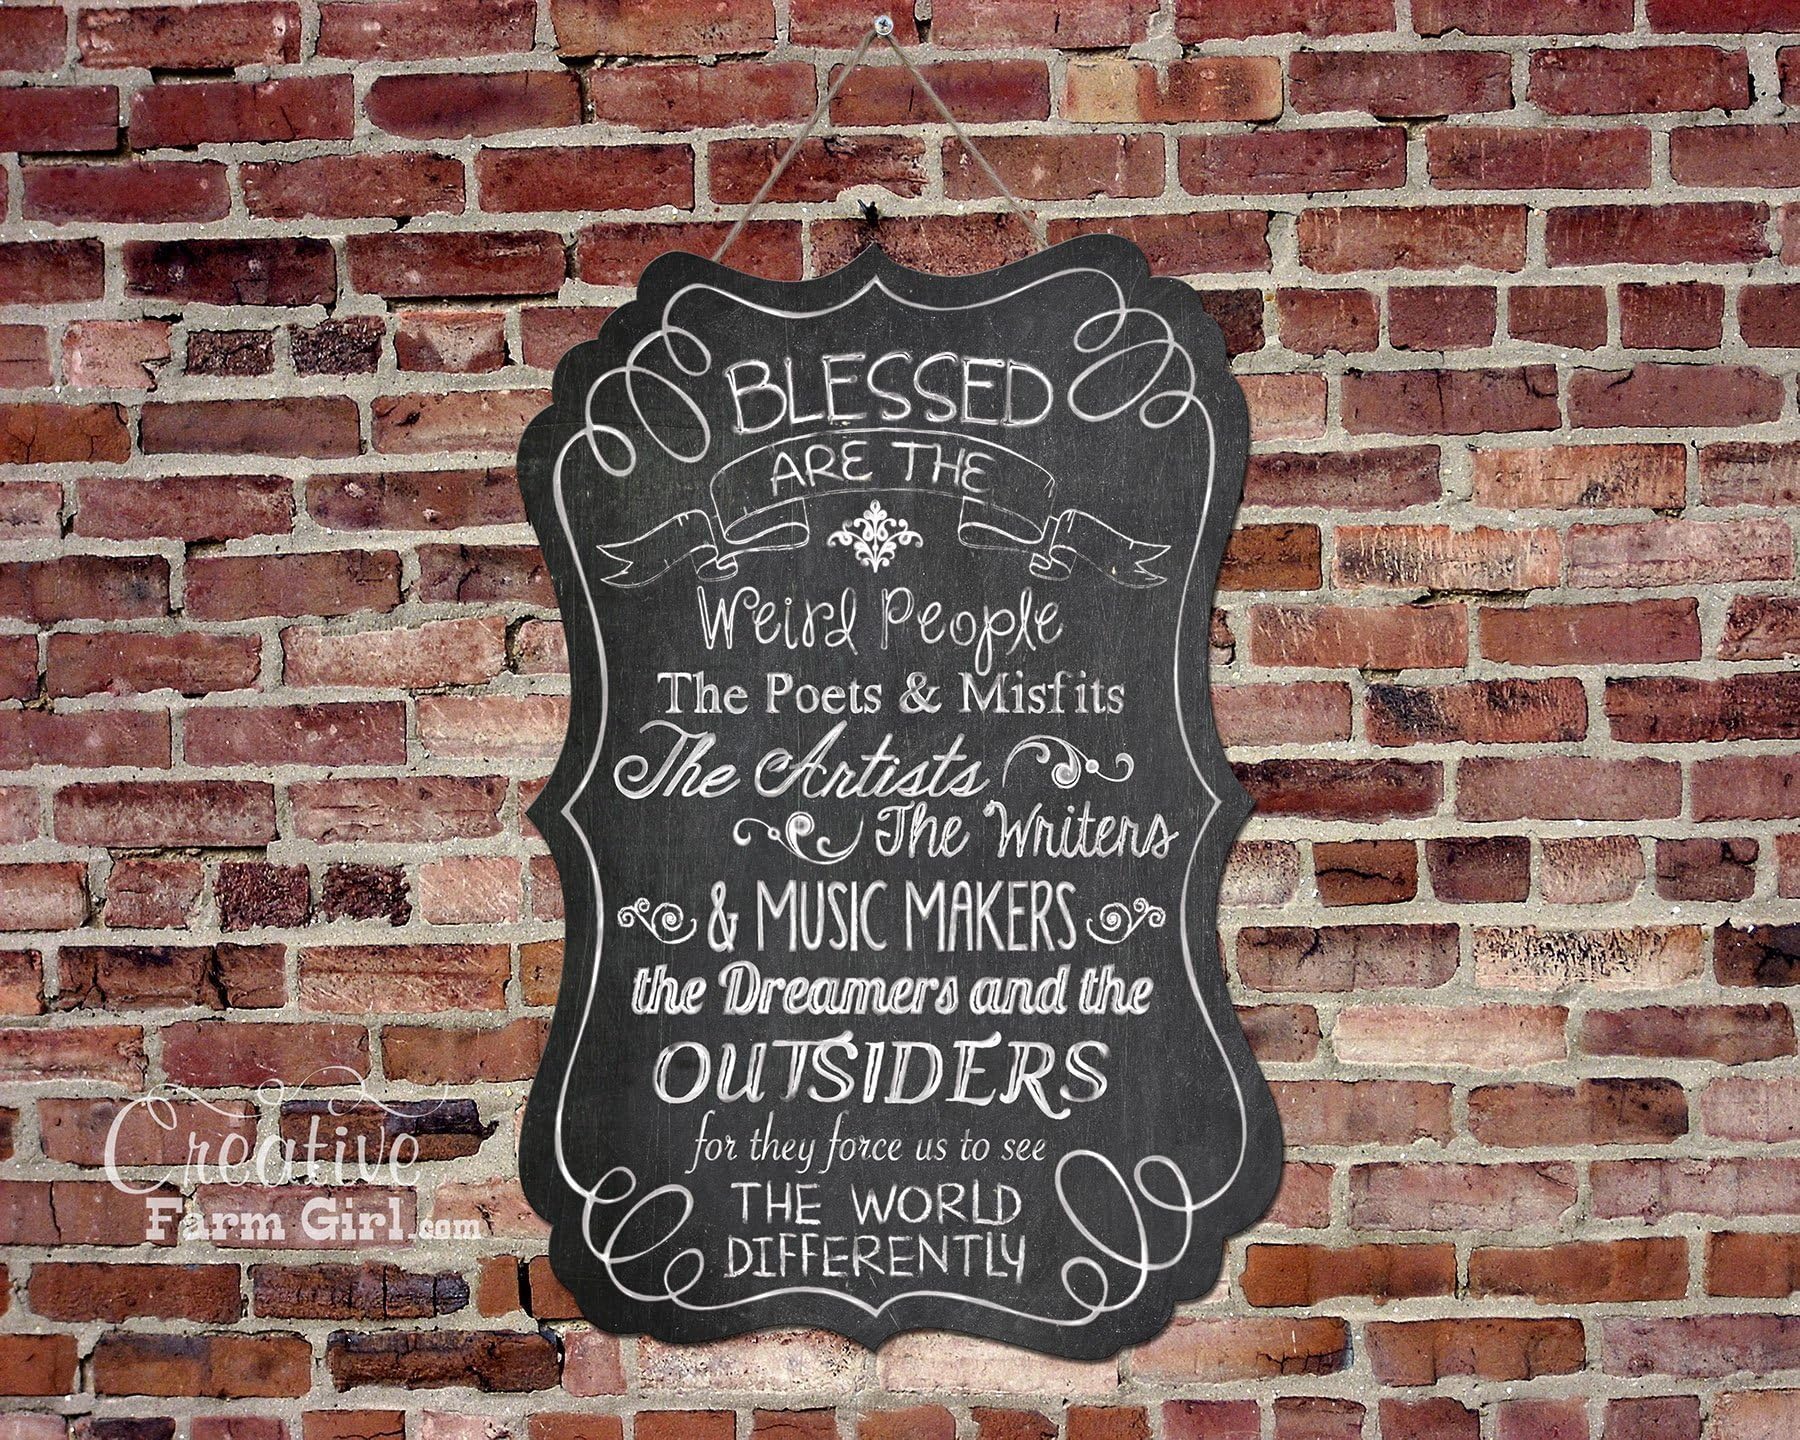 BLESSED
ARE THE
Weird People
The Poets & Misfits
The Artists
The Writers
& MUSIC MAKERS
the Dreamers and the
OUTSIDERS
for they force us to see
THE WORLD
DIFFERENTLY
Creative
Farm Girl.com